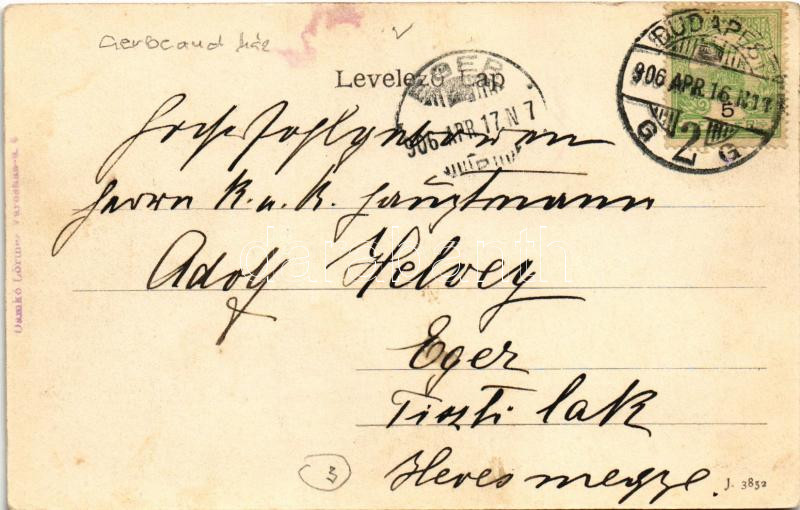 Gerbeaud ház
Levelező Lap
BUDAPEST
906 APR. 16. N11
5
G 2 G
EGER
906 APR. 17. N 7
Hochwohlgeboren
Herrn K. u. K. Hauptmann
Adolf Helvey
Eger
Tiszti lak
Heves megye.
3
J. 3852